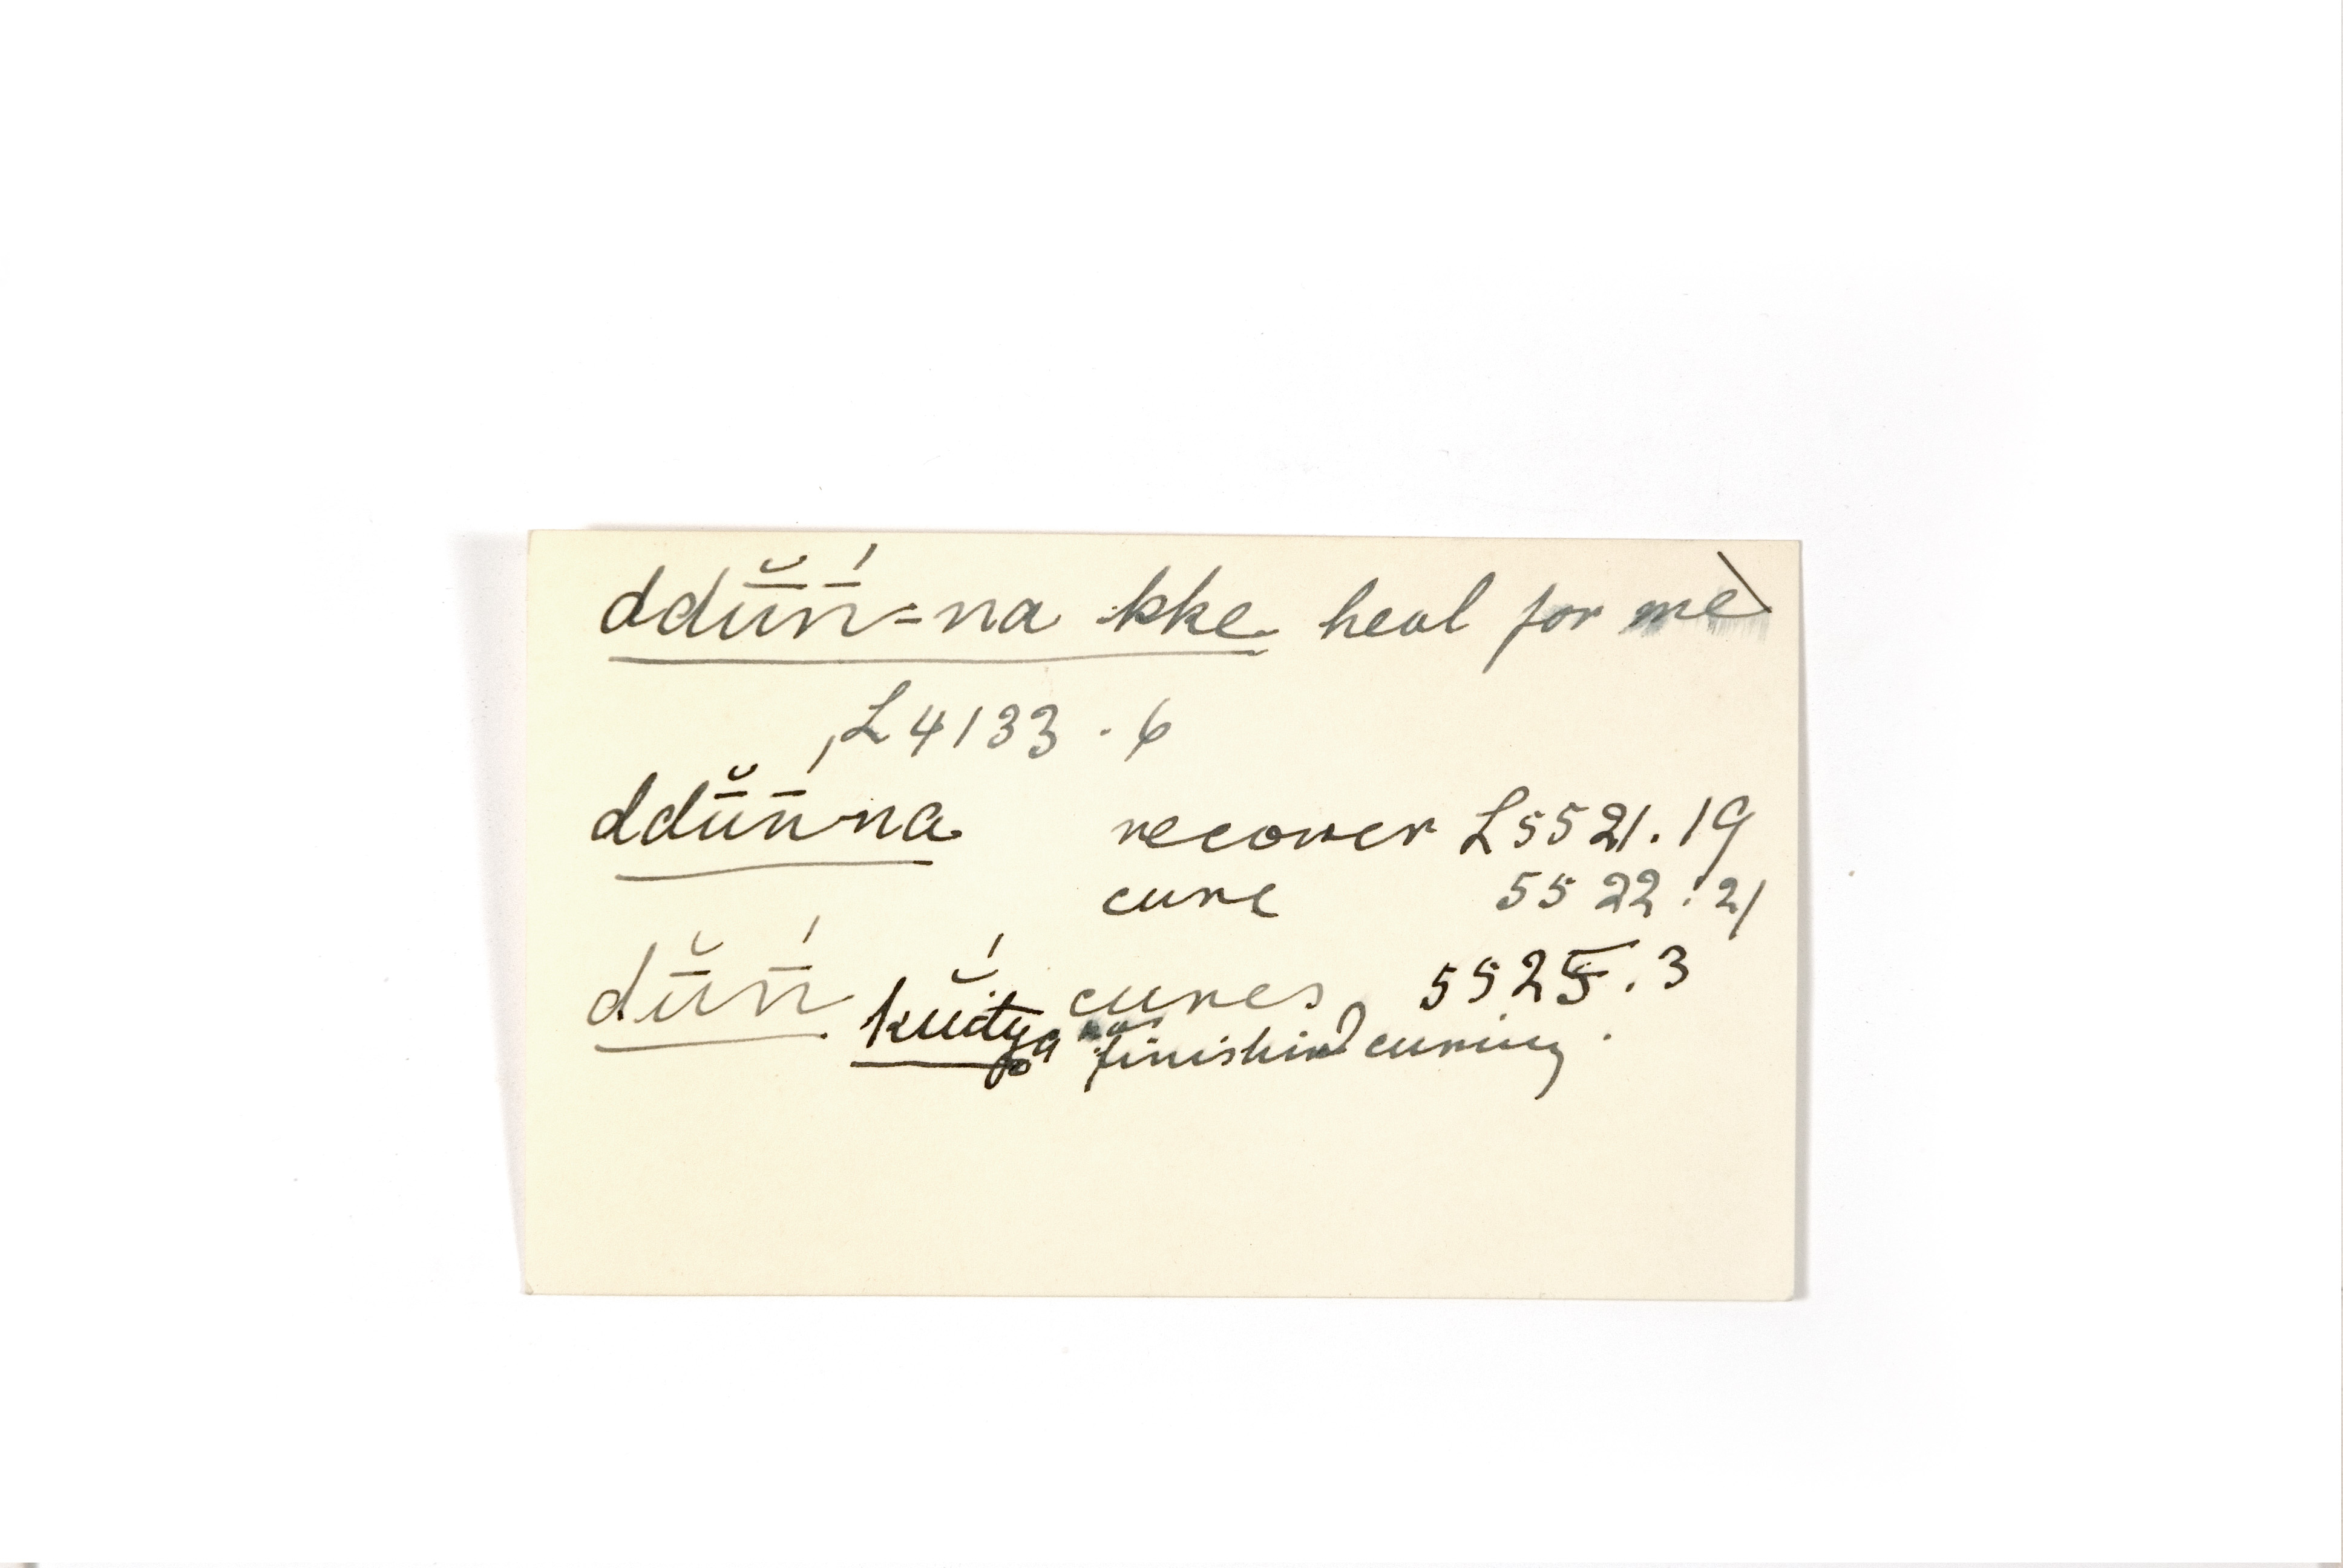 ddū̆n̄́-na kke heal for me
L 4133 . 6
ddū̆n̄́-na recover L5521.19
cure 5522.21
dū̆n̄́ cures 5525.3
finished curing.